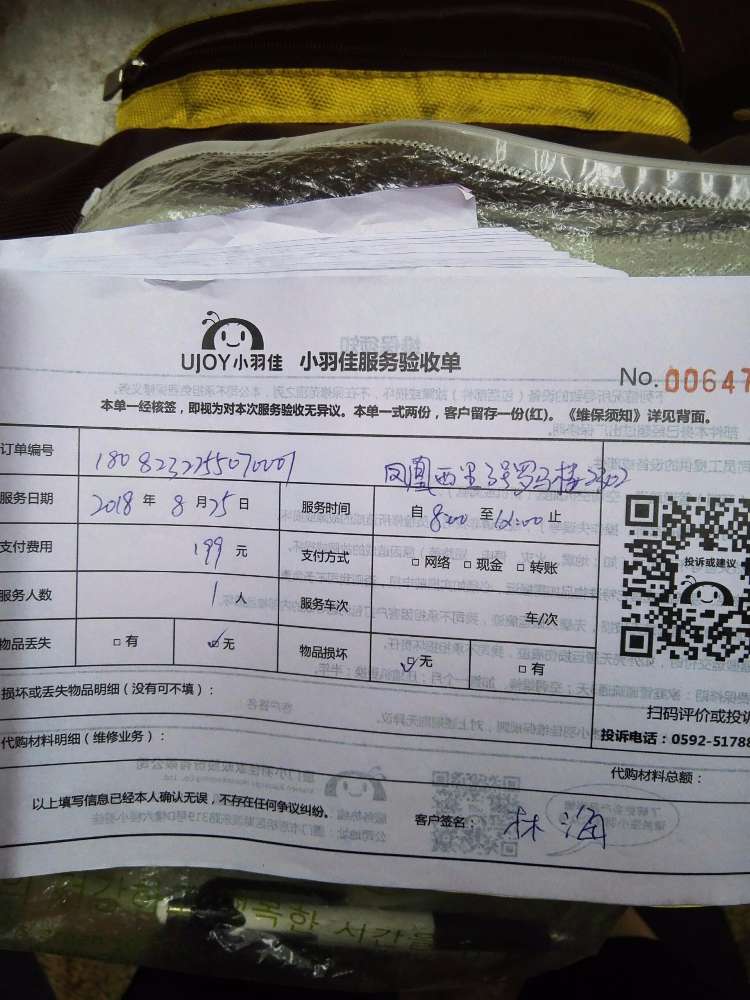 UJOY小羽佳 小羽佳服务验收单
No. 00647
本单一经核签，即视为对本次服务验收无异议。本单一式两份，客户留存一份(红)。《维保须知》详见背面。
订单编号 1808232255070001 凤凰西里3号罗马楼2402
服务日期 2018 年 8 月 25 日 服务时间 自 8:00 至 12:00 止
支付费用 199 元 支付方式 □ 网络 □ 现金 □ 转账
服务人数 1 人 服务车次 车/次
物品丢失 □ 有 ☑ 无 物品损坏 ☑ 无 □ 有
投诉或建议
损坏或丢失物品明细（没有可不填）：
扫码评价或投诉
代购材料明细（维修业务）：
投诉电话：0592-51788
代购材料总额：
以上填写信息已经本人确认无误，不存在任何争议纠纷。
客户签名： 林海